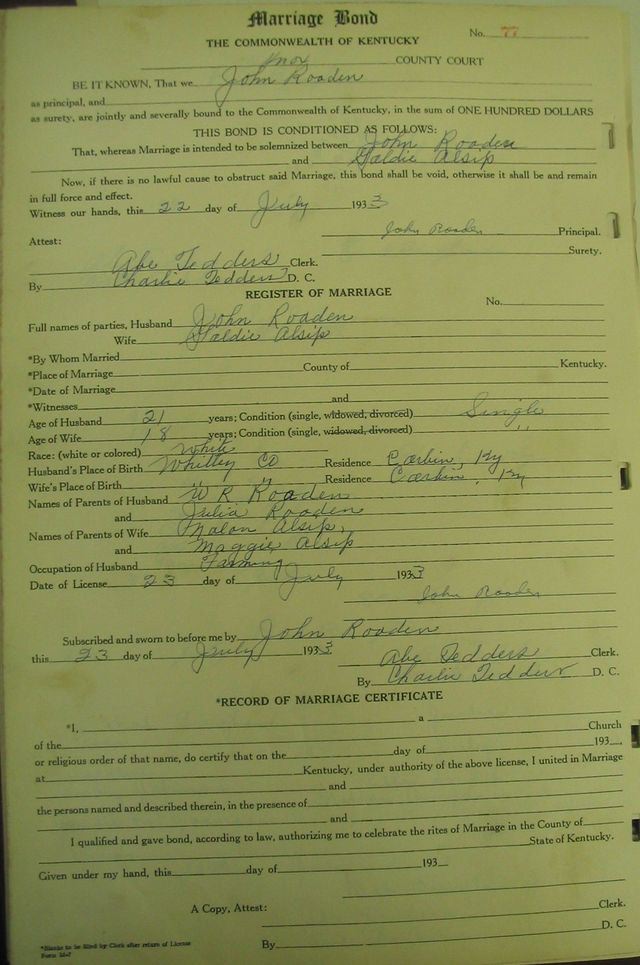 Marriage Bond
No. 77
THE COMMONWEALTH OF KENTUCKY
Knox COUNTY COURT
BE IT KNOWN, That we John Roaden
as principal, and
as surety, are jointly and severally bound to the Commonwealth of Kentucky, in the sum of ONE HUNDRED DOLLARS
THIS BOND IS CONDITIONED AS FOLLOWS:
That, whereas Marriage is intended to be solemnized between John Roaden
and Galdie Alsip
Now, if there is no lawful cause to obstruct said Marriage, this bond shall be void, otherwise it shall be and remain
in full force and effect.
Witness our hands, this 22 day of July 1933
John Roaden Principal.
Attest: Surety.
Abe Tedders Clerk.
By Charlie Tedders D. C.
REGISTER OF MARRIAGE
No.
Full names of parties, Husband John Roaden
Wife Galdie Alsip
*By Whom Married
*Place of Marriage County of Kentucky.
*Date of Marriage
*Witnesses and
Age of Husband 21 years; Condition (single, widowed, divorced) Single
Age of Wife 18 years; Condition (single, widowed, divorced) ,,
Race: (white or colored) White
Husband's Place of Birth Whitley Co Residence Corbin, Ky
Wife's Place of Birth " " Residence Corbin, Ky
Names of Parents of Husband W R Roaden
and Julia Roaden
Names of Parents of Wife Malon Alsip,
and Maggie Alsip
Occupation of Husband Farming
Date of License 23 day of July 1933
John Roaden
Subscribed and sworn to before me by John Roaden
this 23 day of July 1933 Abe Tedders Clerk.
By Charlie Tedders D. C.
*RECORD OF MARRIAGE CERTIFICATE
*I, a Church
of the 193
or religious order of that name, do certify that on the day of
at Kentucky, under authority of the above license, I united in Marriage
and
the persons named and described therein, in the presence of
and
I qualified and gave bond, according to law, authorizing me to celebrate the rites of Marriage in the County of
State of Kentucky.
Given under my hand, this day of 193
A Copy, Attest: Clerk.
By D. C.
*Blanks to be filled by Clerk after return of License